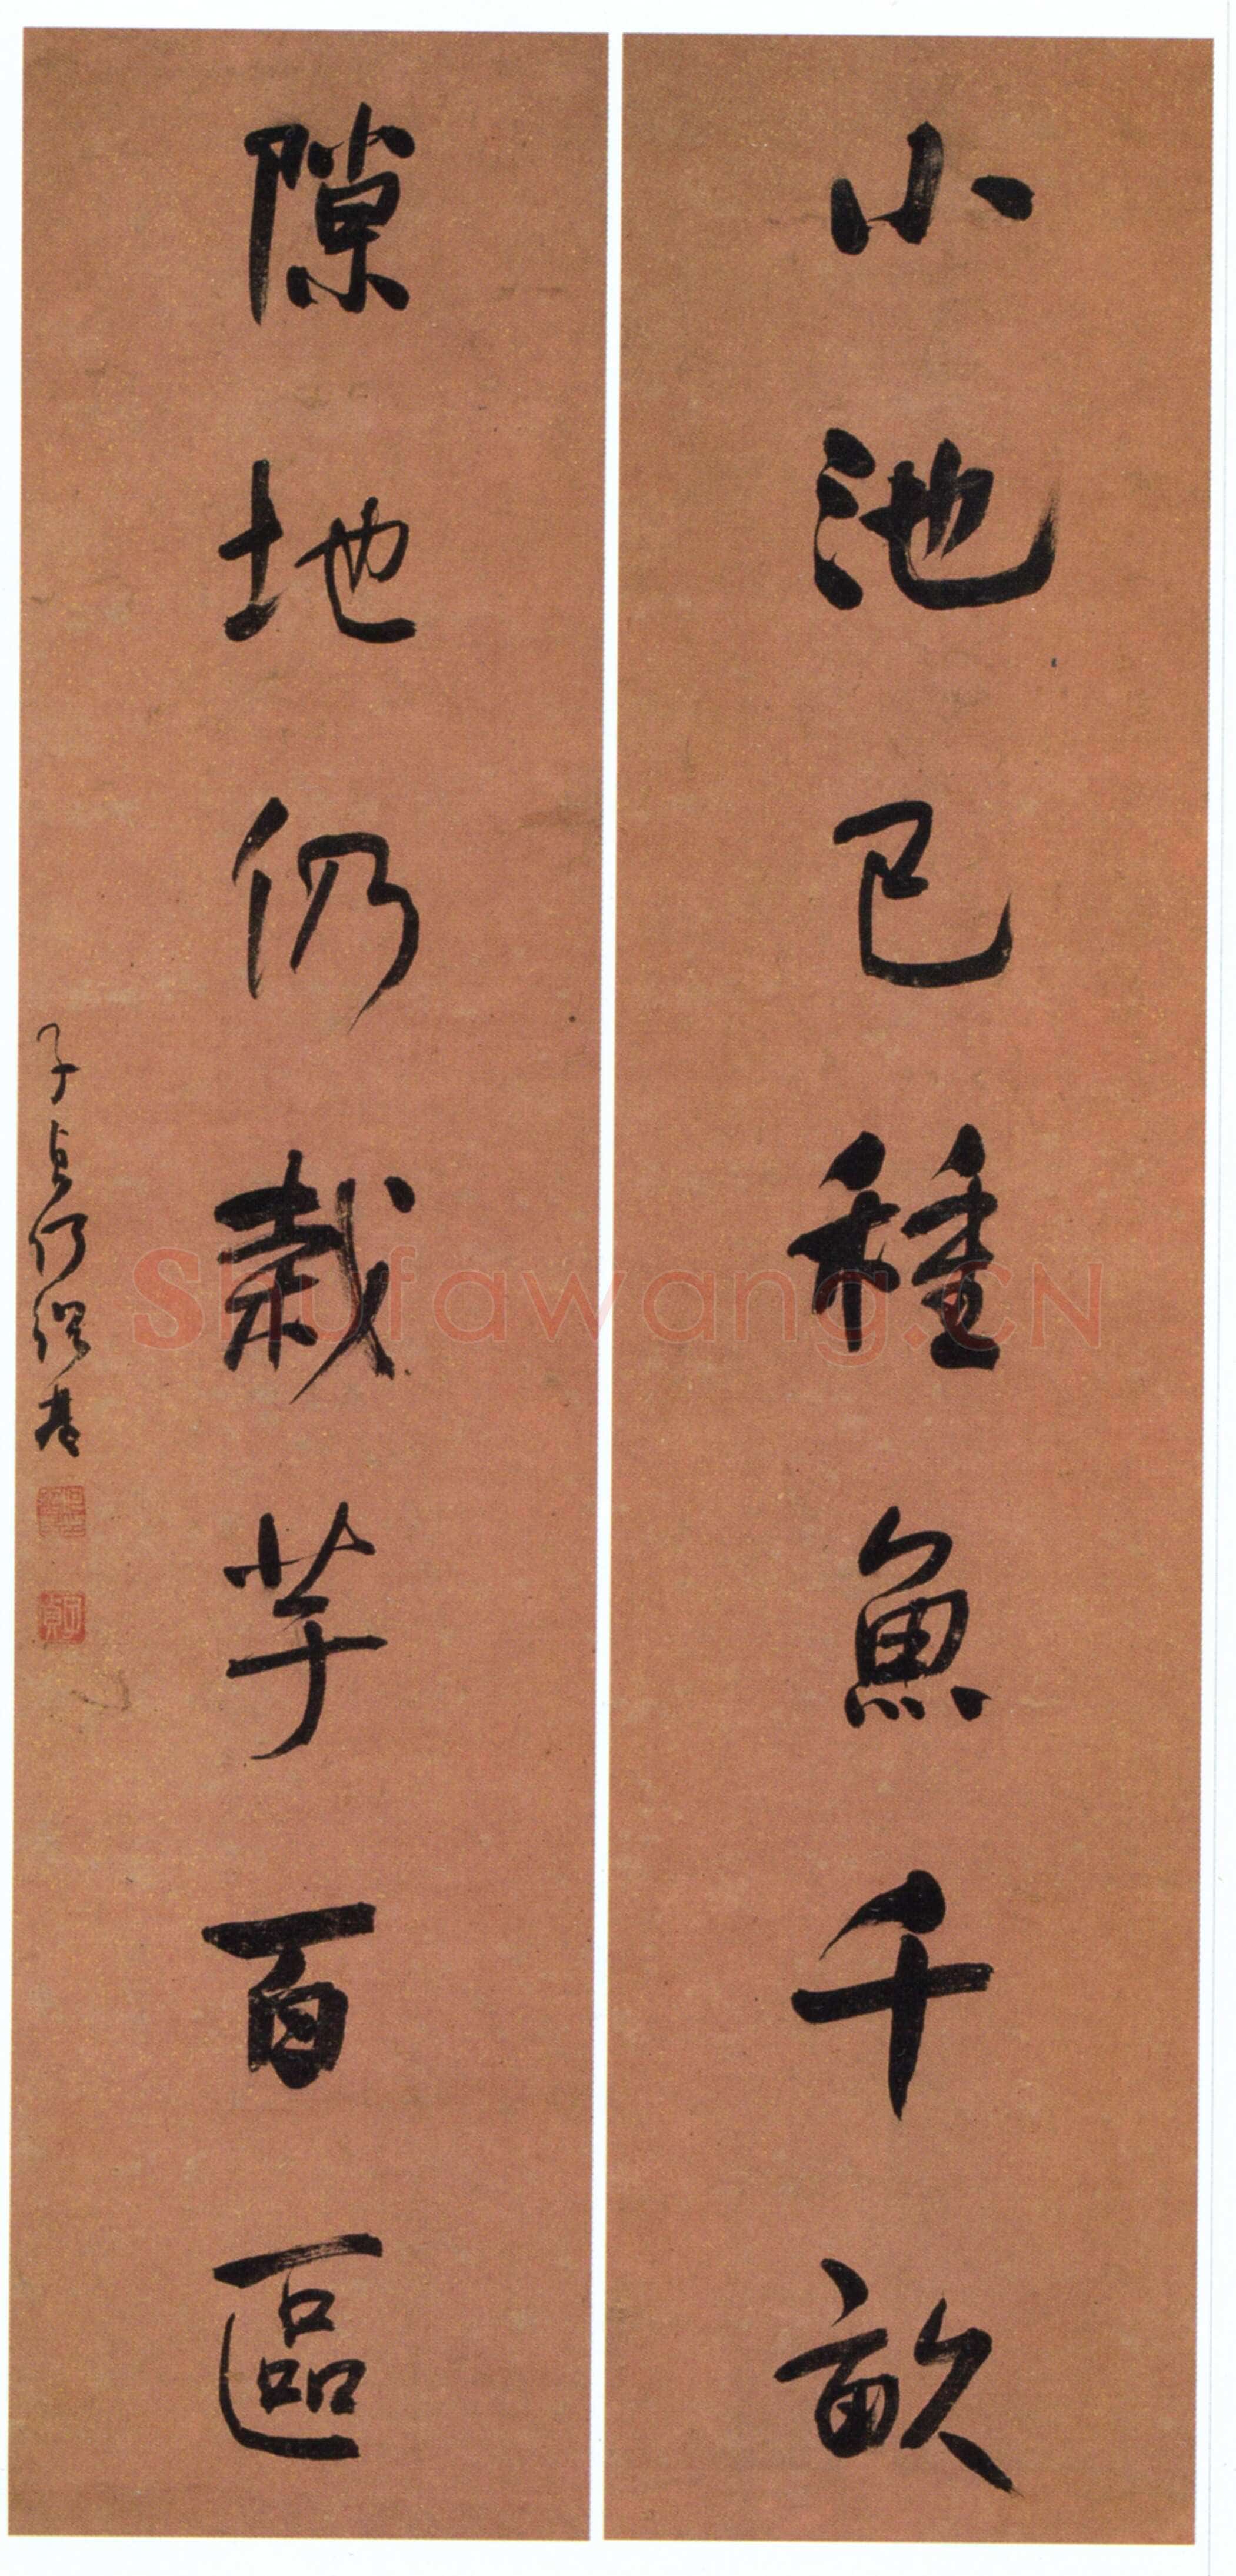 小池已種魚千畝
隙地仍栽芋百區
子貞何紹基
子貞
Shufawang.CN